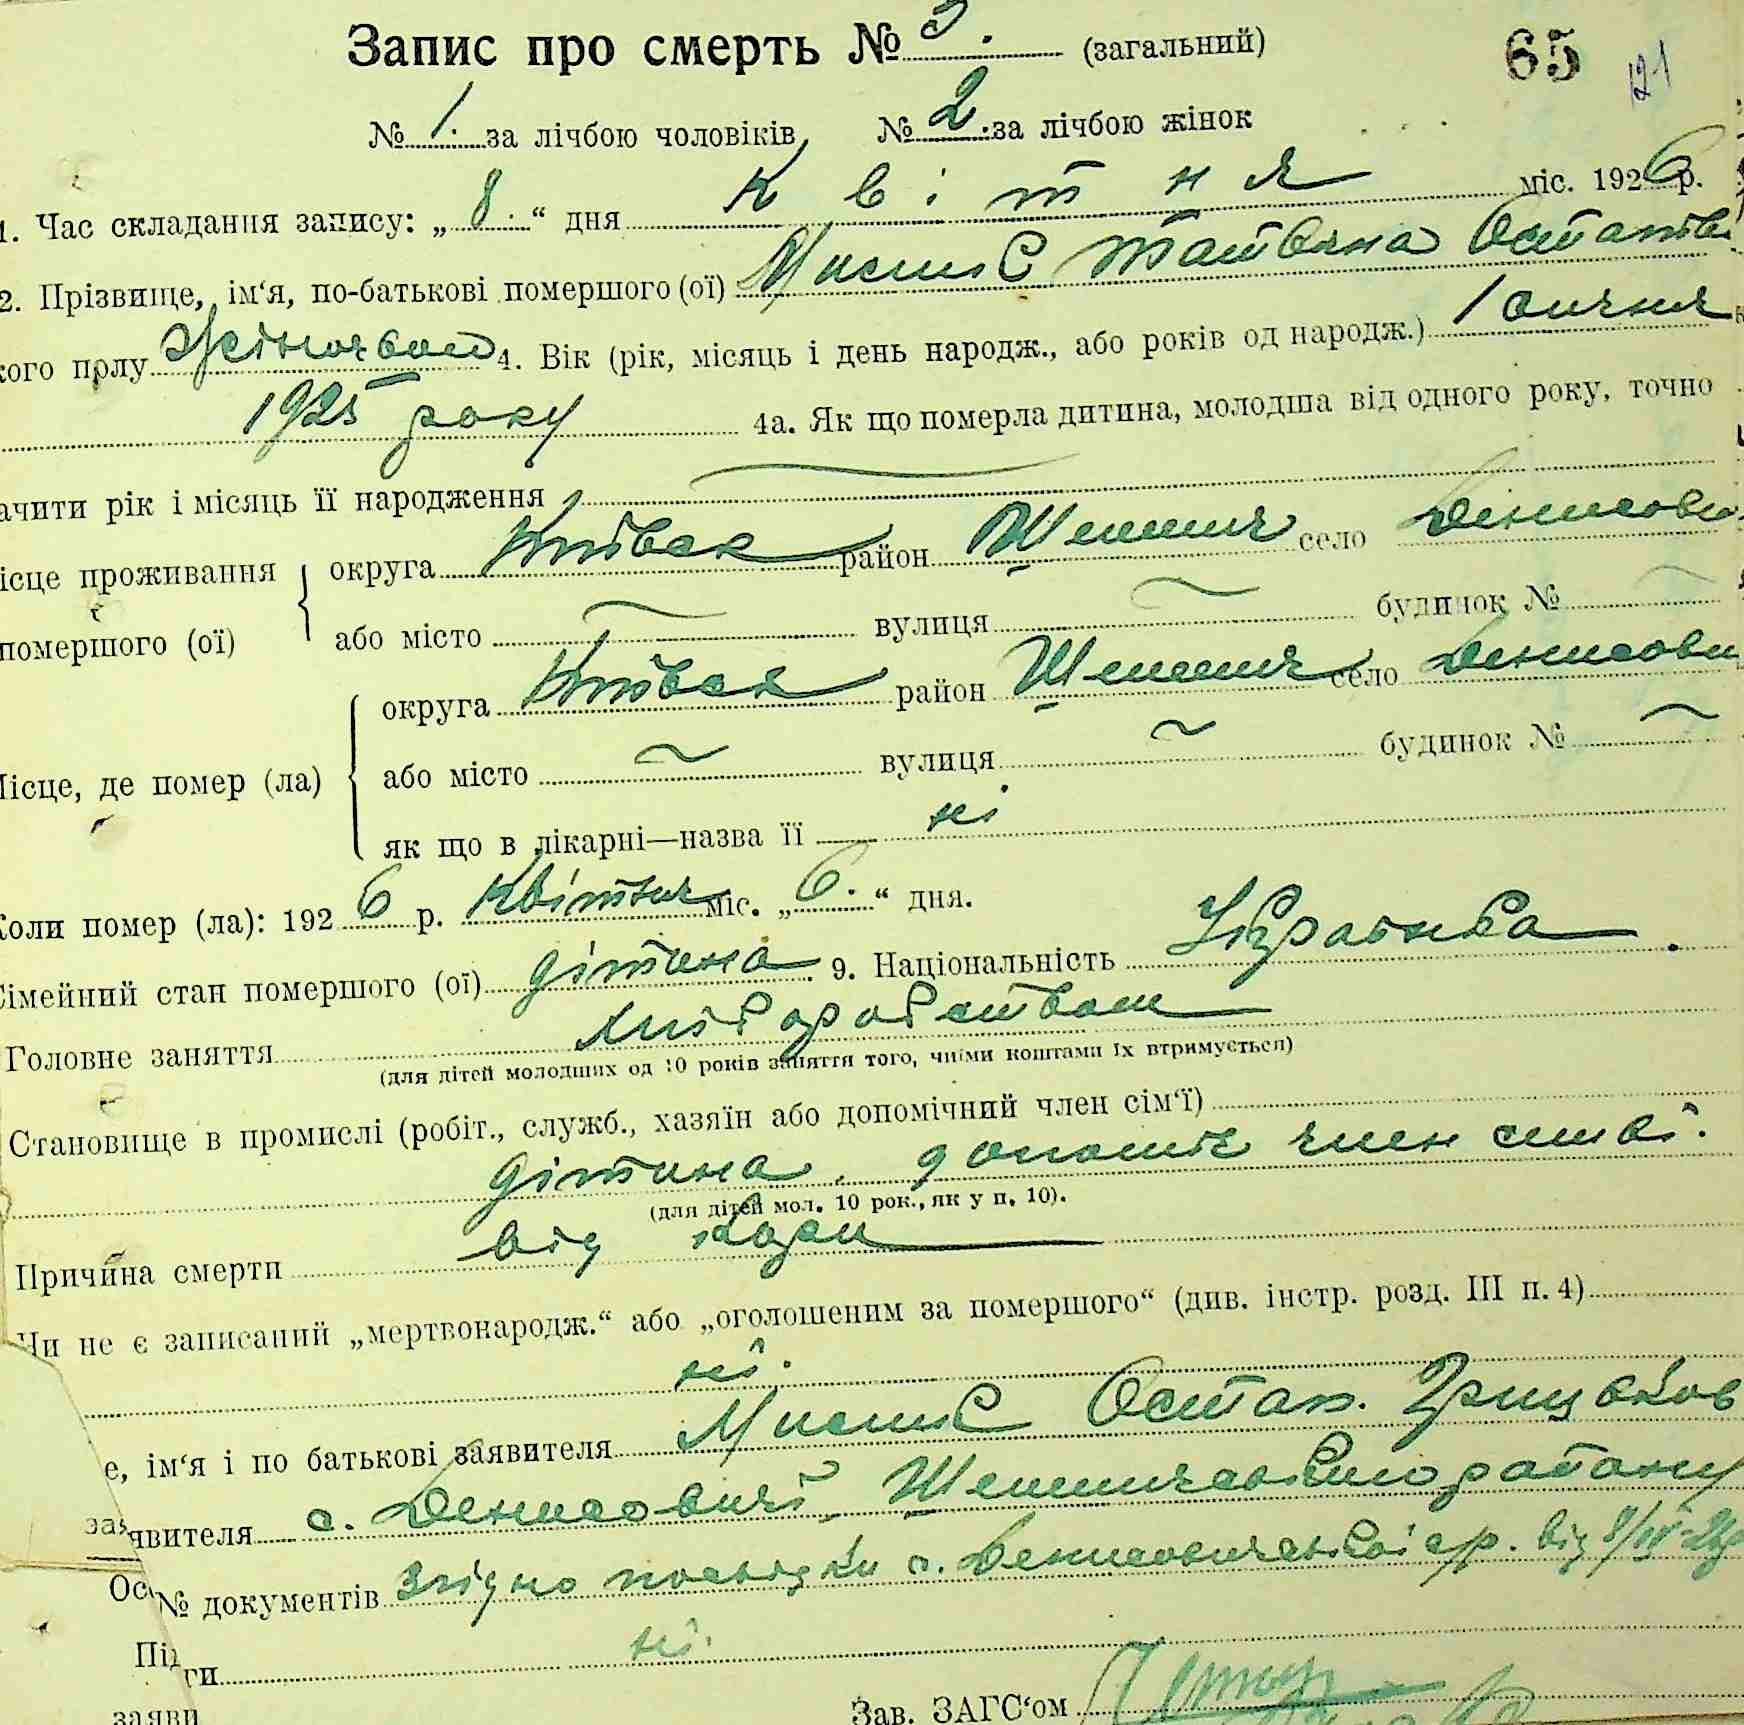 Запис про смерть № 3. (загальний)
65
121
№ 1. за лічбою чоловіків, № 2. за лічбою жінок
1. Час складання запису: „8.“ дня квітня міс. 1926 р.
2. Прізвище, ім‘я, по-батькові помершого (ої) Татьяна Остапів
кого плу жіночого 4. Вік (рік, місяць і день народж., або років од народж.) 1 січня
1925 року 4а. Як що померла дитина, молодша від одного року, точно
ачити рік і місяць її народження
ісце проживання округа Київськ район Шепелич село Денисови
помершого (ої) або місто вулиця будинок №
округа Київськ район Шепелич село Денисови
Місце, де помер (ла) або місто вулиця будинок №
як що в лікарні—назва її ні
Коли помер (ла): 1926 р. квітня міс. „6.“ дня.
Сімейний стан помершого (ої) дітина 9. Національність Українка
Головне заняття хліборобством
(для дітей молодших од 10 років заняття того, чиїми коштами їх втримується)
Становище в промислі (робіт., служб., хазяїн або допомічний член сім‘ї)
дітина, допоміч член сімьї.
(для дітей мол. 10 рок., як у п. 10).
Причина смерти від кору
Чи не є записаний „мертвонародж.“ або „оголошеним за помершого“ (див. інстр. розд. III п. 4)
ні.
е, ім‘я і по батькові заявителя Остап. Грицьков
заявителя с. Денисовичі, Шепелического району
№ документів Згідно посвідки с. Денисовичської с/р. від 8/IV-26р
ги ні.
Зав. ЗАГС‘ом
заяви